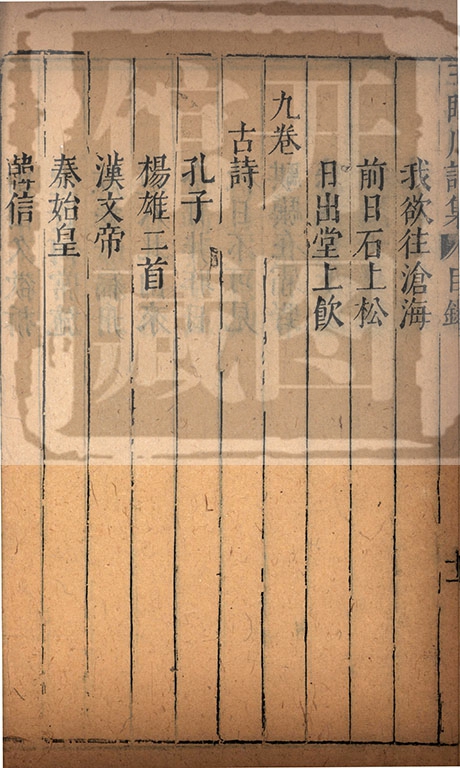 王臨川詩集 目錄
我欲往滄海
前日石上松
日出堂上飲
九卷
古詩
孔子
楊雄二首
漢文帝
秦始皇
韓信